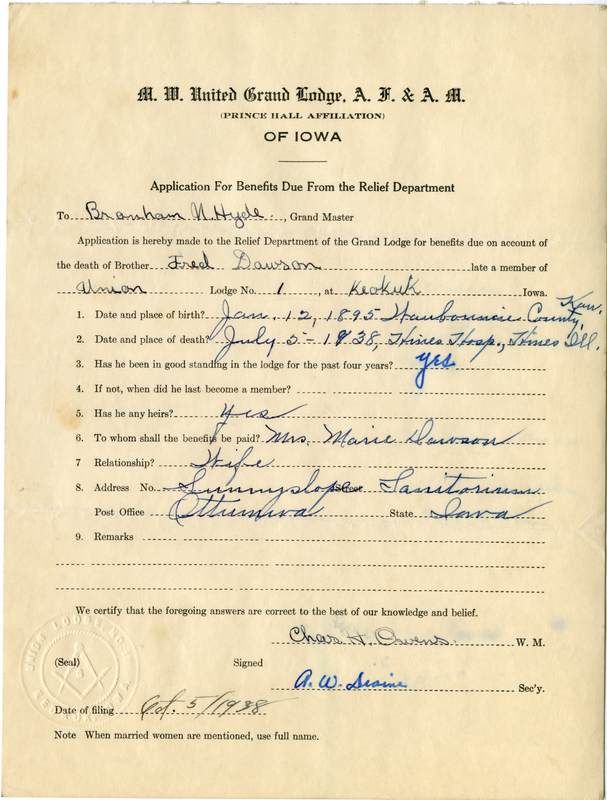 M. W. United Grand Lodge, A. F. & A. M.
(PRINCE HALL AFFILIATION)
OF IOWA
Application For Benefits Due From the Relief Department
To Branham N. Hyde, Grand Master
Application is hereby made to the Relief Department of the Grand Lodge for benefits due on account of
the death of Brother Fred Dawson late a member of
Union Lodge No. 1, at Keokuk Iowa.
1. Date and place of birth? Jan. 12, 1895 Waubounsie County, Kan.
2. Date and place of death? July 5 - 1938, Hines Hosp., Hines Ill.
3. Has he been in good standing in the lodge for the past four years? yes
4. If not, when did he last become a member?
5. Has he any heirs? Yes
6. To whom shall the benefits be paid? Mrs. Marie Dawson
7 Relationship? Wife
8. Address No. Sunnyslope Street Sanitorium
Post Office Ottumwa State Iowa
9. Remarks
We certify that the foregoing answers are correct to the best of our knowledge and belief.
Chas. H. Owens. W. M.
(Seal) Signed
A. W. Sec'y.
UNION LODGE NO. 1
Date of filing Oct. 5/1938
Note When married women are mentioned, use full name.